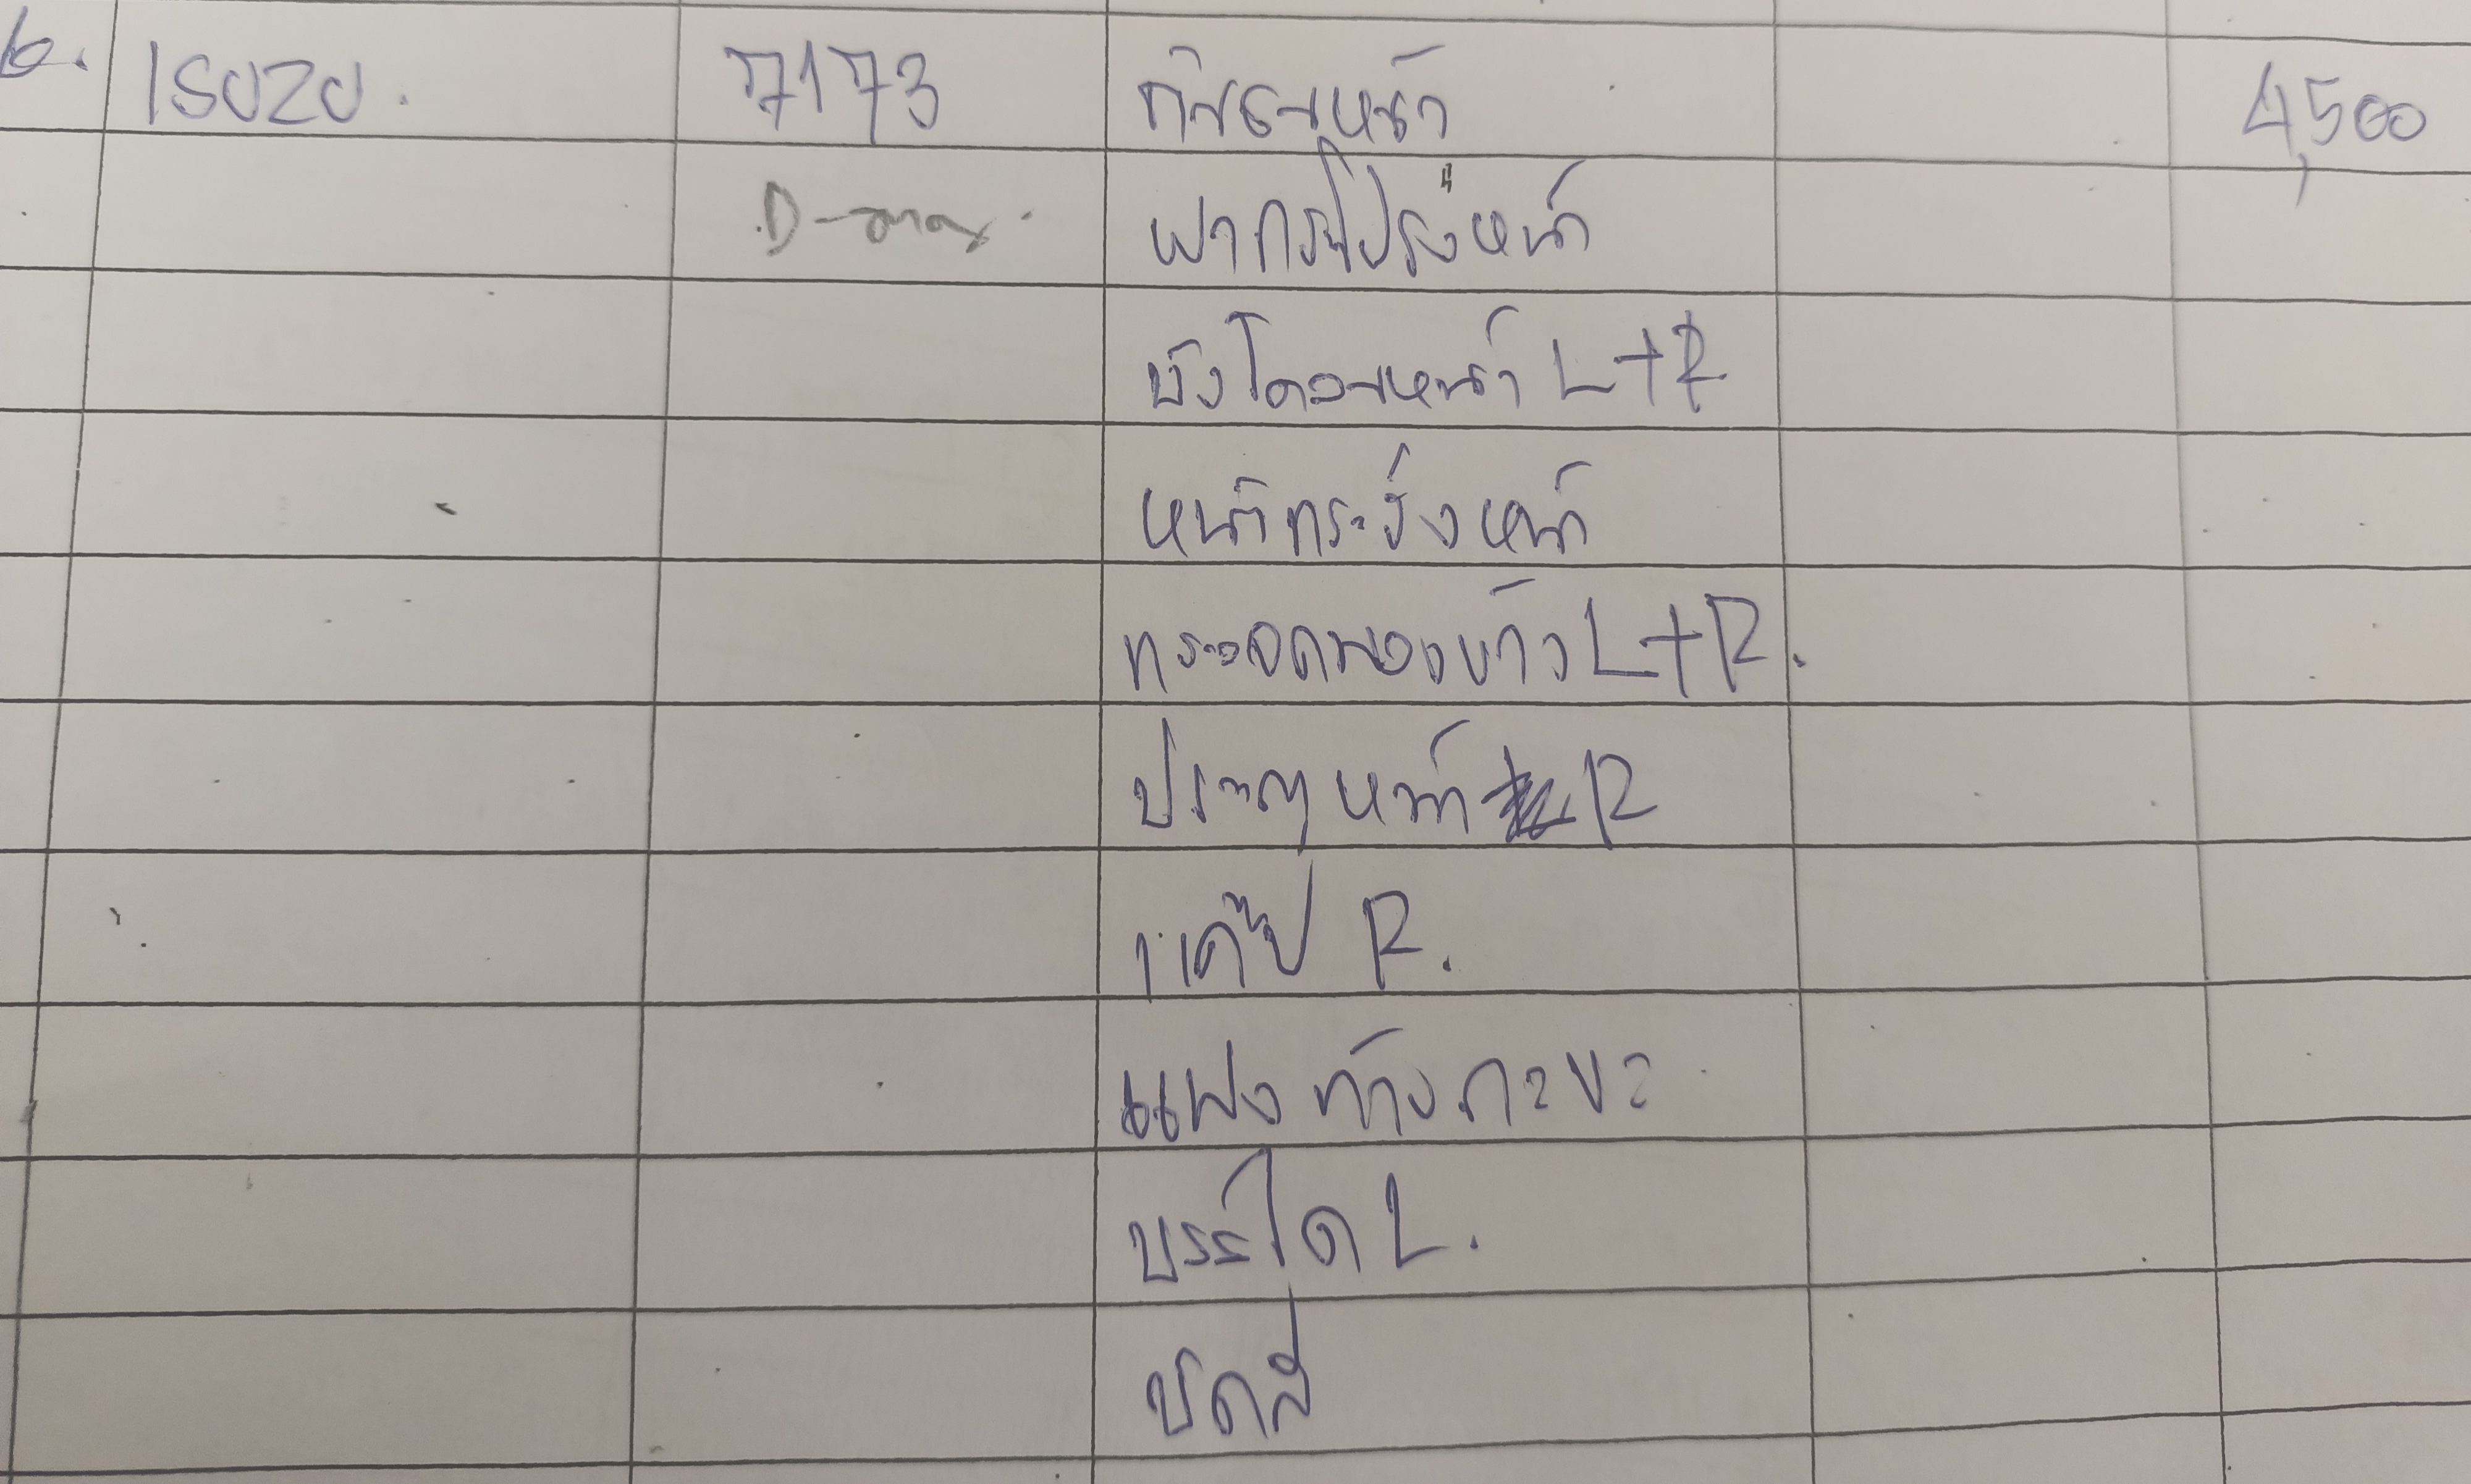 6. ISUZU. 7173 กันชนหน้า 4,500
D-max ฝากระโปรงหน้า
บังโคลนหน้า L+R
หน้ากระจังหน้า
กระจกมองข้าง L+R.
ประตูหน้า R
แค๊ป R.
แผงท้ายกะบะ
บรรได L.
ขัดสี